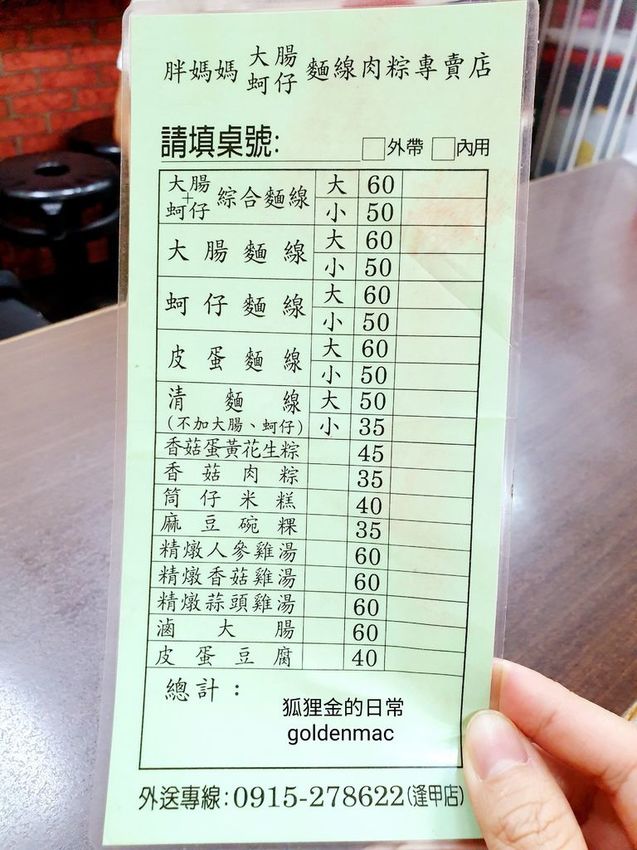 胖媽媽 大腸 蚵仔 麵線肉粽專賣店
請填桌號: □外帶 □內用
大腸+蚵仔 綜合麵線 大 60
小 50
大腸麵線 大 60
小 50
蚵仔麵線 大 60
小 50
皮蛋麵線 大 60
小 50
清麵線 大 50
(不加大腸、蚵仔) 小 35
香菇蛋黃花生粽 45
香菇肉粽 35
筒仔米糕 40
麻豆碗粿 35
精燉人參雞湯 60
精燉香菇雞湯 60
精燉蒜頭雞湯 60
滷大腸 60
皮蛋豆腐 40
總計：
狐狸金的日常
goldenmac
外送專線:0915-278622(逢甲店)